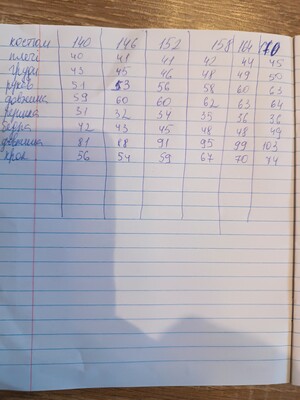 костюм 140 146 152 158 164 170
плечі 40 41 41 42 44 45
груди 43 45 46 48 49 50
рукав 51 53 56 58 60 63
довжина 59 60 60 62 63 64
31 32 34 35 36 36
бедра 42 43 45 48 48 49
довжина 81 88 91 95 99 103
крок 56 54 59 67 70 74